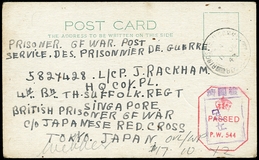 POST CARD
THE ADDRESS TO BE WRITTEN ON THIS SIDE
PRISONER OF WAR POST
SERVICE.DES.PRISONNIER DE.GUERRE.
5824428. L/CP. J. RACKHAM.
HQ COY. PL.
4TH BN TH.SUFFOLK.REGT
SINGAPORE
BRITISH PRISONER OF WAR
C/O JAPANESE RED.CROSS
TOKYO. JAPAN.
PASSED
P.W. 544